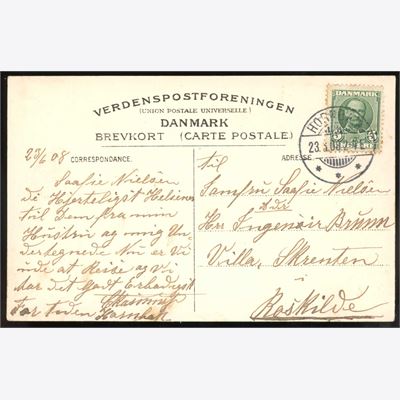 VERDENSPOSTFORENINGEN
(UNION POSTALE UNIVERSELLE)
DANMARK
BREVKORT (CARTE POSTALE)
DANMARK
5
23/6 08
CORRESPONDANCE.
ADRESSE
Saafie Nielsen
de Hjerteligst
til Dem fra min
Hustru og mig Un
dertegnede Nu er Vi
inde at Reise og Vi
har det Godt
til
Jomfru Saafie Nielsen
Adr
Hr Ingeniør Bruun
Villa, Skrenten
i
Roskilde